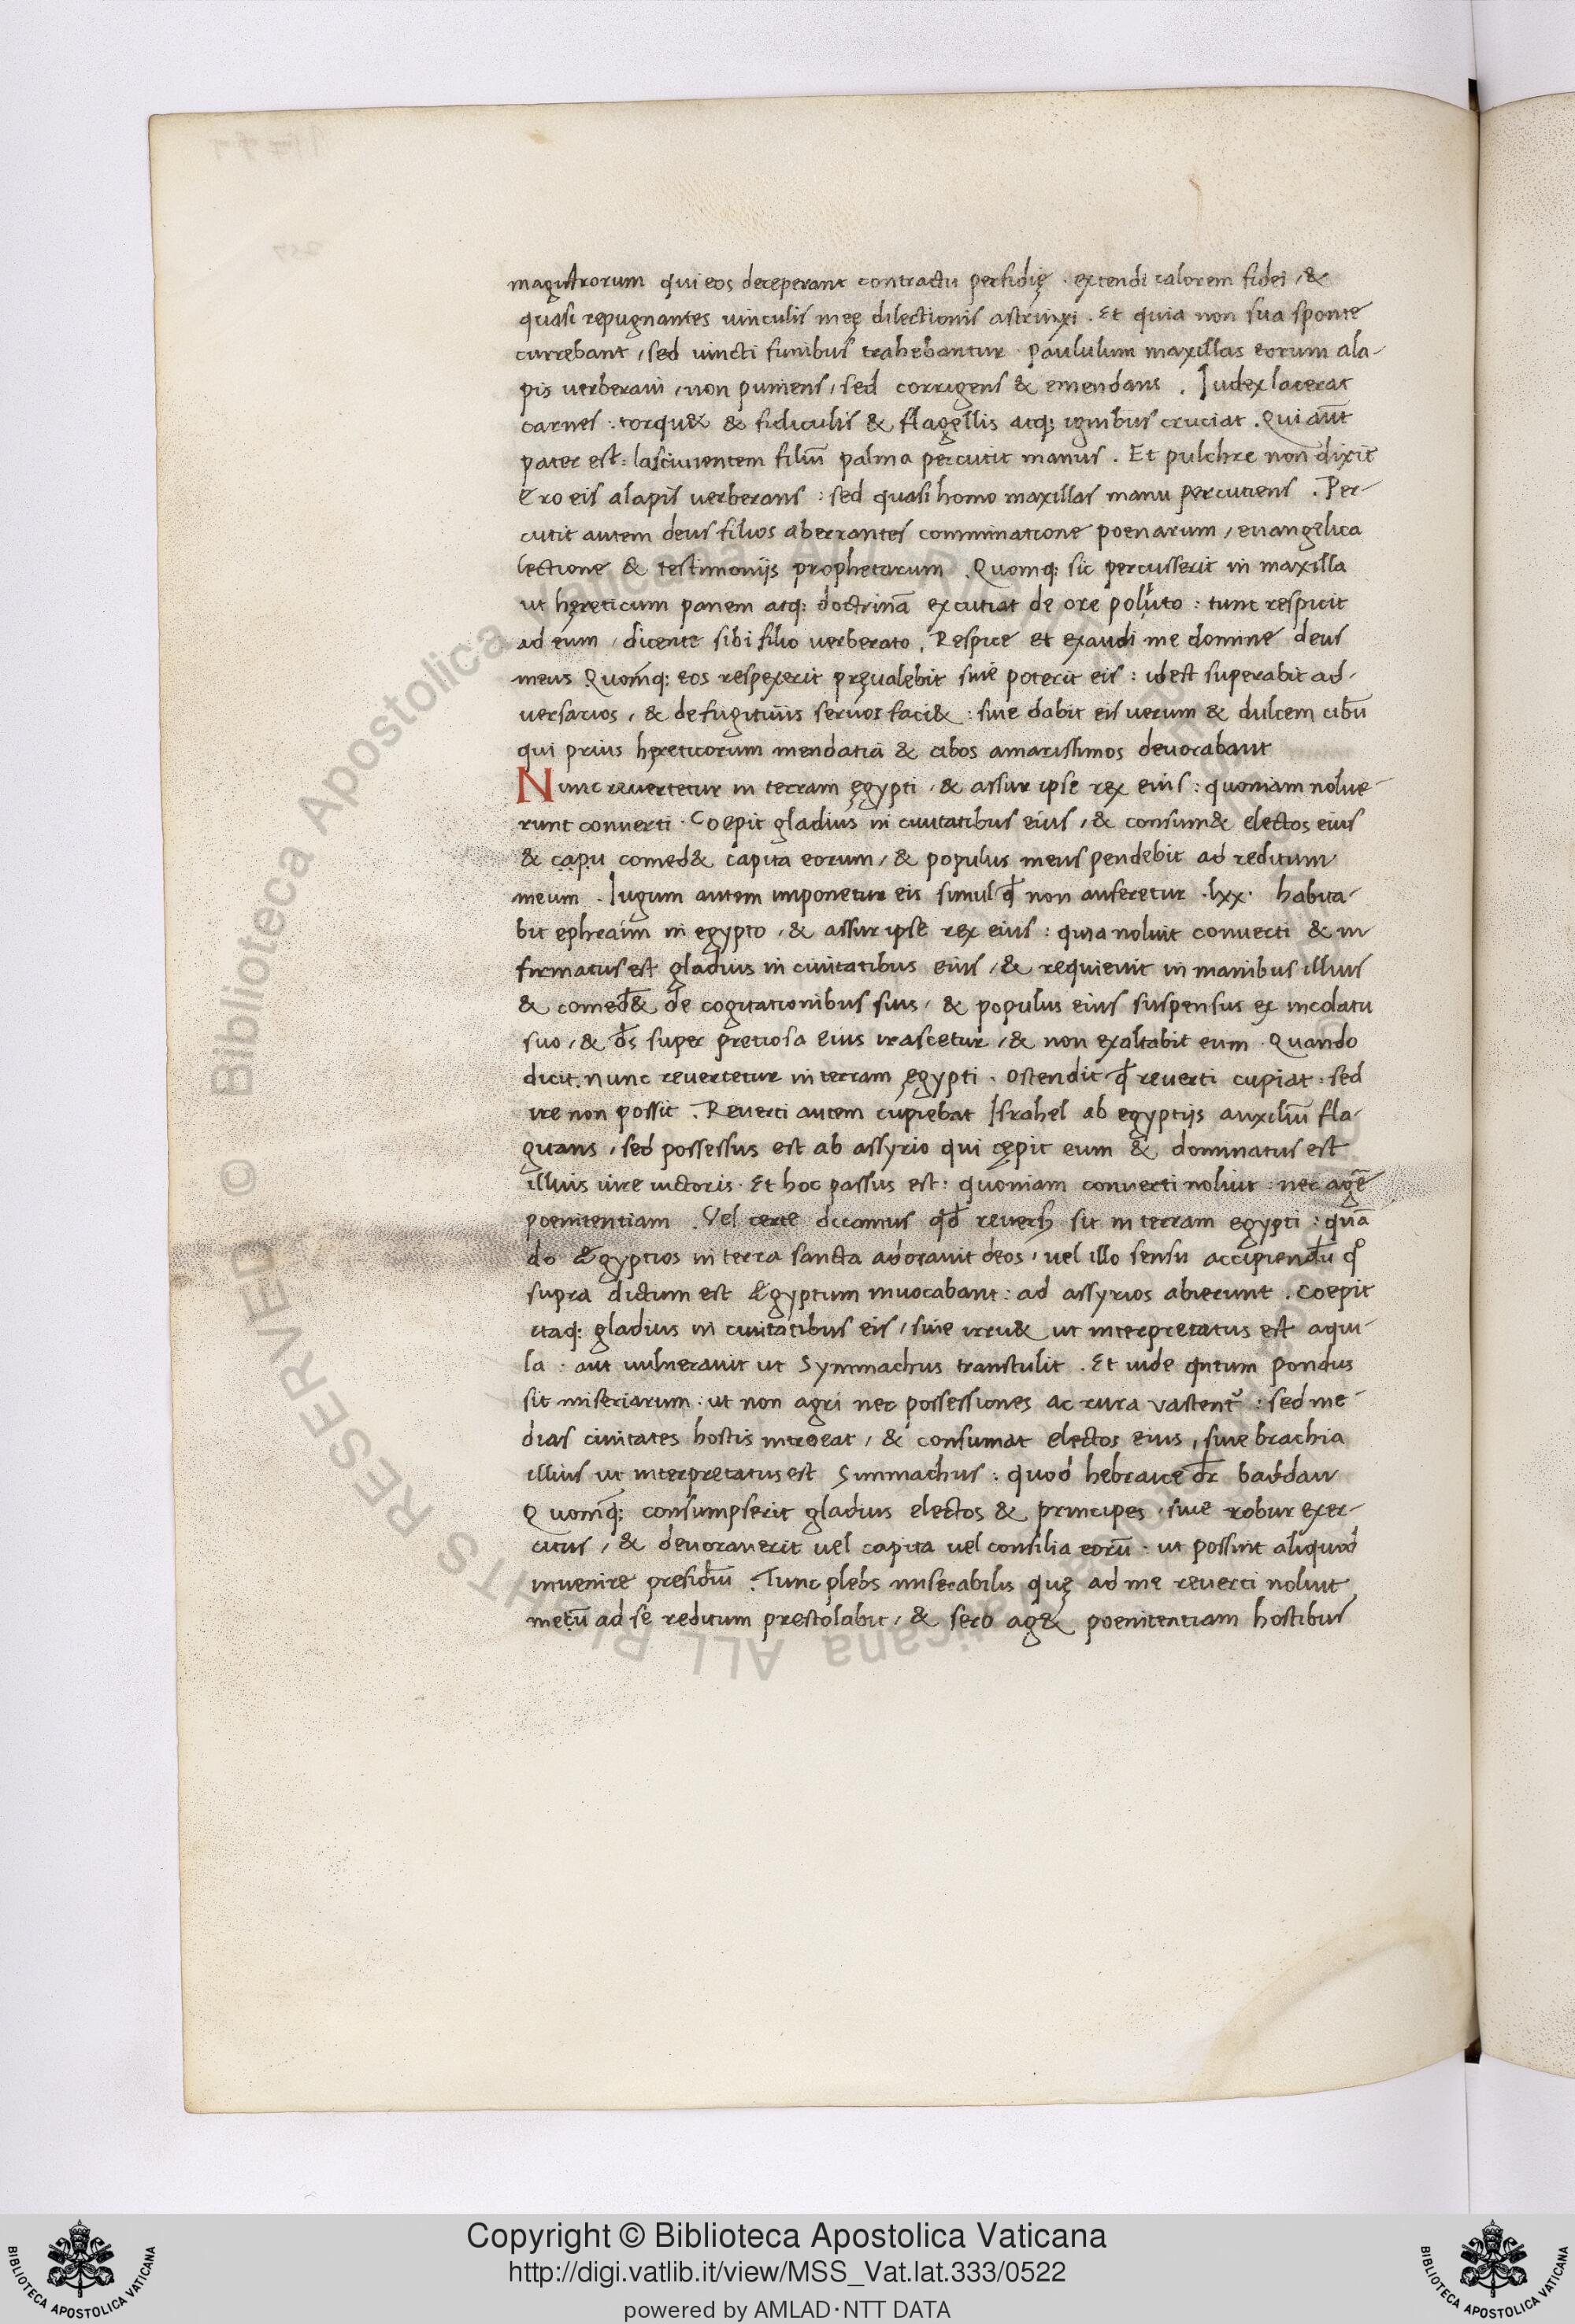 magistrorum qui eos deceperant contractu perfidię · extendi calorem fidei , &
quasi repugnantes uinculis meę dilectionis astrinxi . Et quia non sua sponte
currebant , sed uincti funibus trahebantur · paululum maxillas eorum ala-
pis uerberaui , non puniens , sed corrigens & emendans . Iudex lacerat
carnes : torqu& & fidiculis & flagellis atq; ignibus cruciat . Qui aūt
pater est : lasciuientem filiū palma percutit manus . Et pulchre non dixit
Ero eis alapis uerberans : sed quasi homo maxillas manu percutiens . Per-
cutit autem deus filios aberrantes comminatione poenarum , euangelica
lectione & testimonijs prophetarum . Quomq; sic percusserit in maxilla
ut hęreticum panem atq; doctrinā excutiat de ore poluto : tunc respicit
ad eum , dicente sibi filio uerberato . Respice et exaudi me domine deus
meus Quomq; eos respexerit pręualebit siue poterit eis : id est superabit ad-
uersarios , & de fugitiuis seruos faci& : siue dabit eis uerum & dulcem cibū
qui prius hęreticorum mendatia & cibos amarissimos deuorabant
Nunc reuertetur in terram ęgypti , & assur ipse rex eius : quoniam nolue-
runt conuerti . Coepit gladius in ciuitatibus eius , & consum& electos eius
& capu comed& capita eorum , & populus meus pendebit ad reditum
meum . Iugum autem imponetur eis simul qđ non auferetur . lxx . habita-
bit ephraim in egypto , & assur ipse rex eius : quia noluit conuerti & in
firmatus est gladius in ciuitatibus eius , & requieuit in manibus illius
& comed& de cogitationibus suis , & populus eius suspensus ex incolatu
suo , & đs super pretiosa eius irascetur , & non exaltabit eum . Quando
dicit . nunc reuertetur in terram ęgypti . ostendit qđ reuerti cupiat : sed
ire non possit . Reuerti autem cupiebat Israhel ab egyptijs auxiliū fla-
gitans , sed possessus est ab assyrio qui cępit eum & dominatus est
illius iure uictoris . Et hoc passus est : quoniam conuerti noluit : nec agē
poenitentiam . Vel certe dicamus qđ reuersus sit in terram egypti : quā
do Ægyptios in terra sancta adorauit deos , uel illo sensu accipiendū qo
supra dictum est Ægyptum inuocabant : ad assyrios abierunt . Coepit
itaq; gladius in ciuitatibus eis , siue irru& ut interpretatus est aqui-
la : aut uulnerauit ut Symmachus transtulit . Et uide qntum pondus
sit miseriarum : ut non agri nec possessiones ac rura vastent² : sed me-
dias ciuitates hostis introeat , & consumat electos eius , siue brachia
illius ut interpretatus est Simmachus : quod hebraice dr baddau
Quomq; consumpserit gladius electos & principes , siue robur exer-
citus , & deuorauerit uel capita uel consilia eorū : ut possint aliquod
inuenire presidiū . Tunc plebs miserabilis quę ad me reuerti noluit
meū ad se reditum prestolabit , & sero ag& poenitentiam hostibus
© Biblioteca Apostolica Vaticana ALL RIGHTS RESERVED
Copyright © Biblioteca Apostolica Vaticana
http://digi.vatlib.it/view/MSS_Vat.lat.333/0522
powered by AMLAD·NTT DATA
BIBLIOTECA APOSTOLICA VATICANA
BIBLIOTECA APOSTOLICA VATICANA